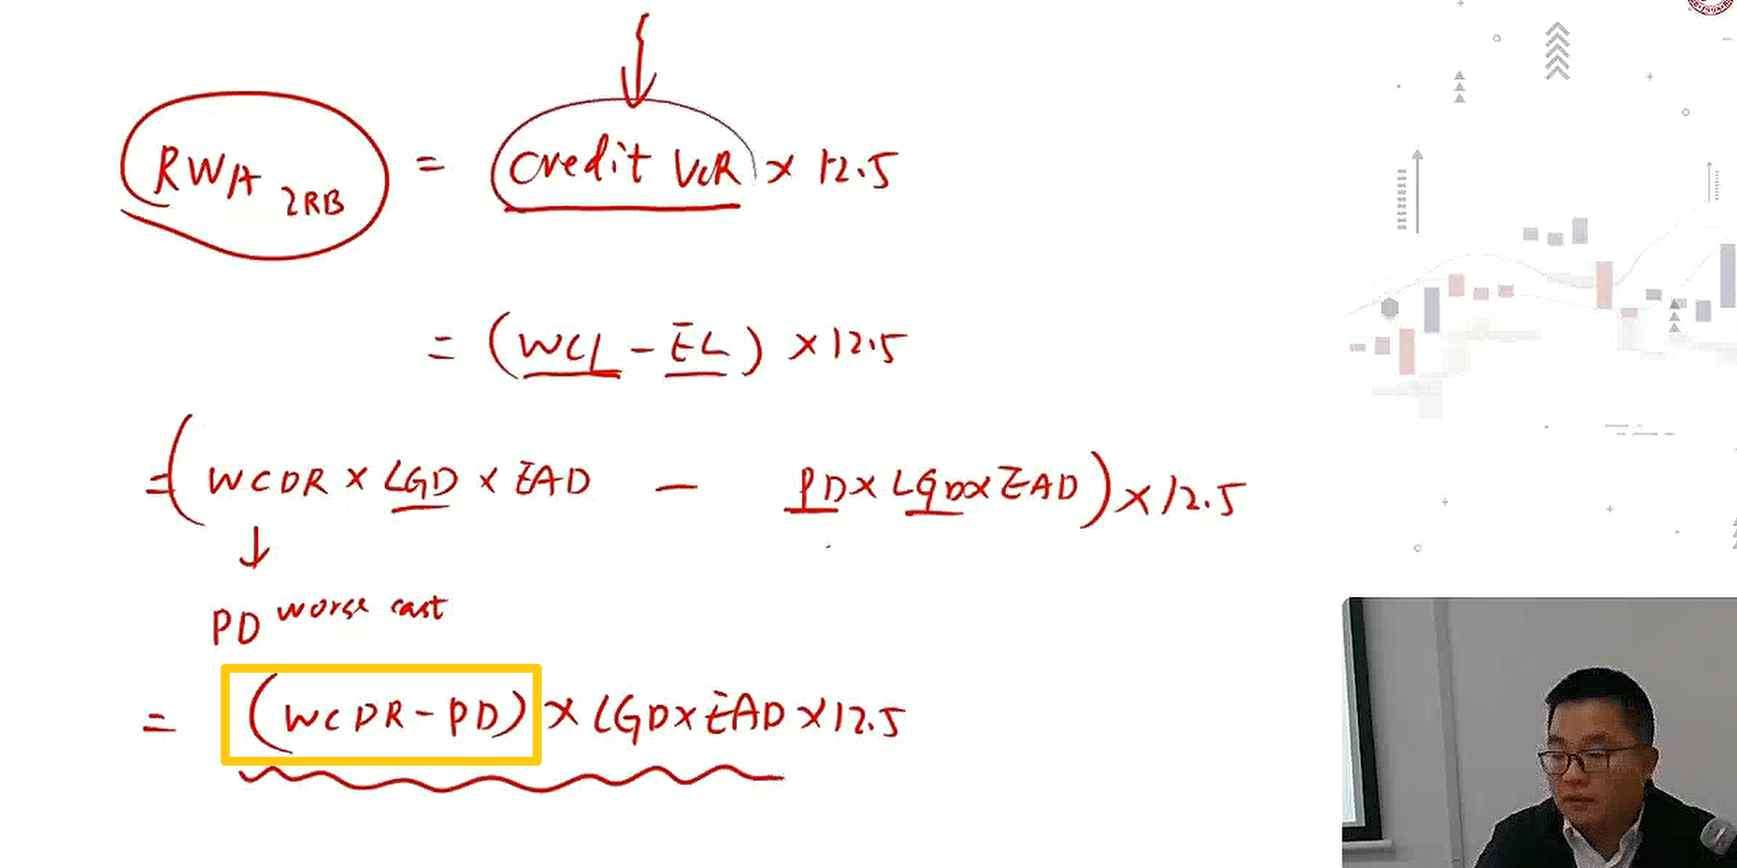 RWA IRB = credit VaR × 12.5
= (WCL - EL) × 12.5
= (WCDR × LGD × EAD - PD × LGD × EAD) × 12.5
↓
PD worse cast
= (WCDR - PD) × LGD × EAD × 12.5